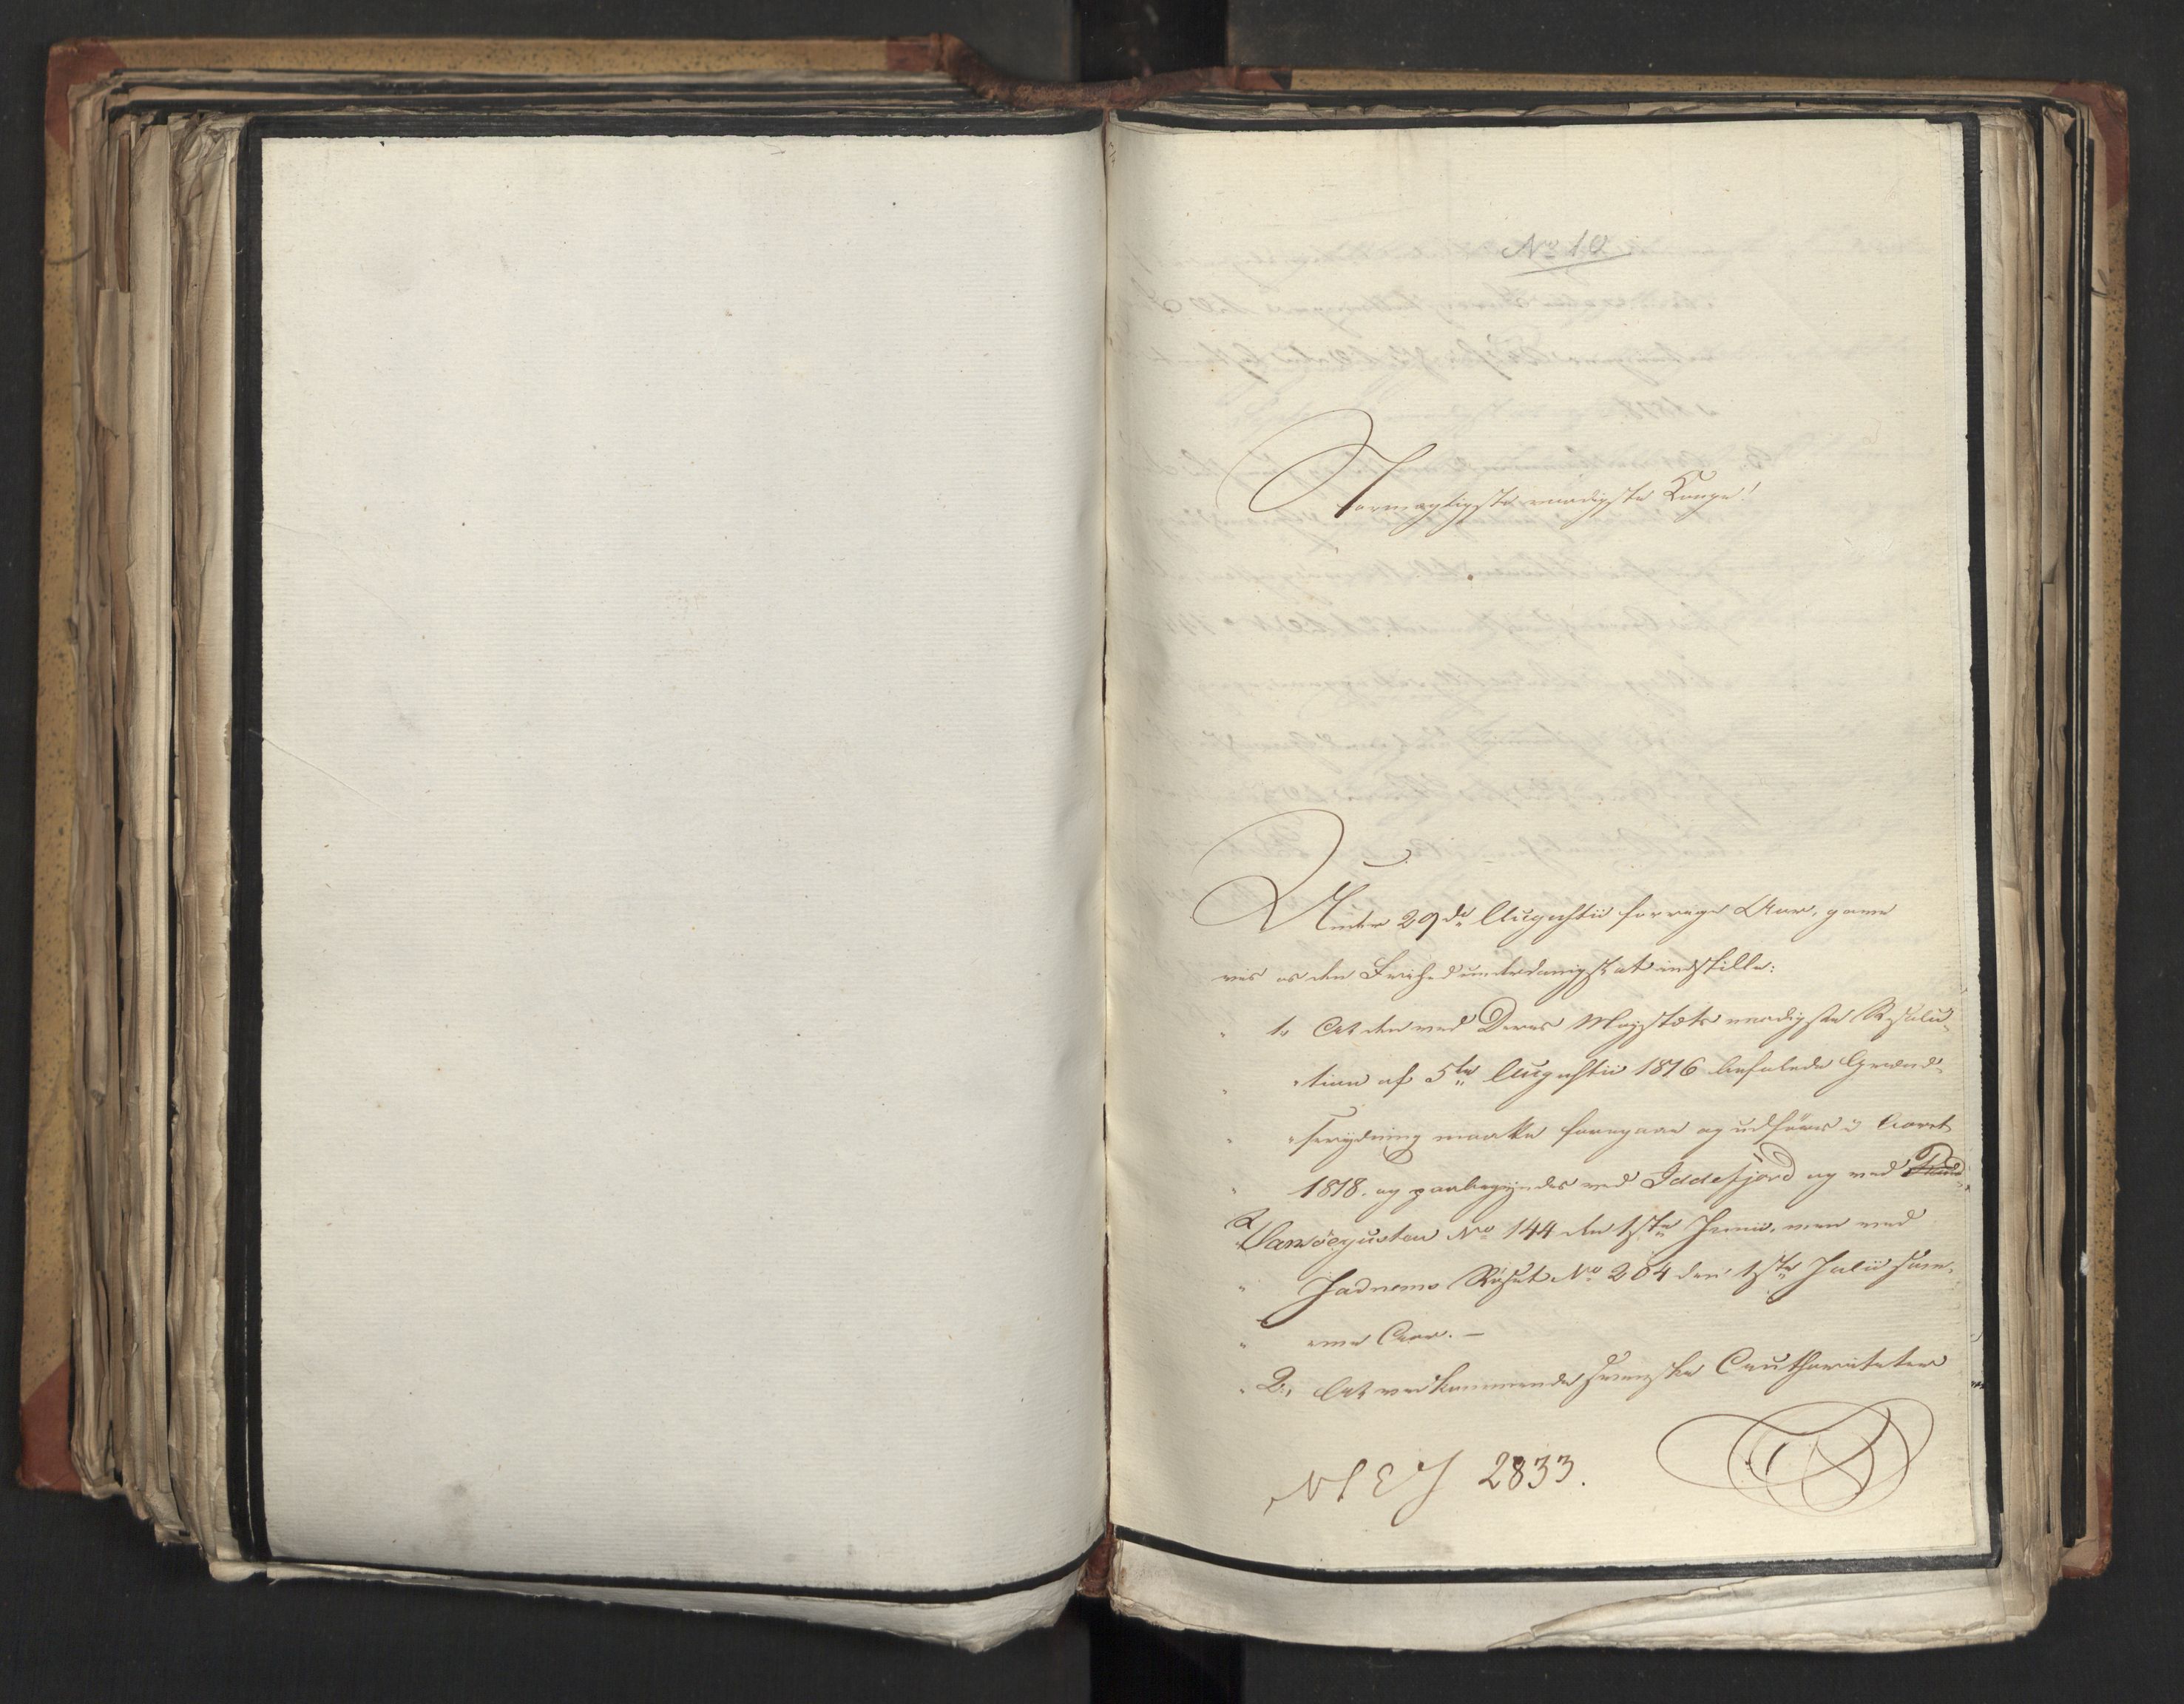 No 10
Stormægtigste naadigste Konge!
Under 29de Augustii forrige Aar, gave
vi os den Frihed underdanigst at indstille:
" 1, At den ved Deres Majestæts naadigste Resolu-
" tion af 5te Augustii 1816 befalede Grændse-
" rydning maatte foregaae og udføres i Aaret
" 1818. og paabegyndes ved Iddefjord og ved
No 144 den 1ste Junii, men ved
" Røset No 204 den 1ste Julii sam-
" me Aar. —
" 2, At vedkommende svenske Authoriteter
NSEJ 2833.